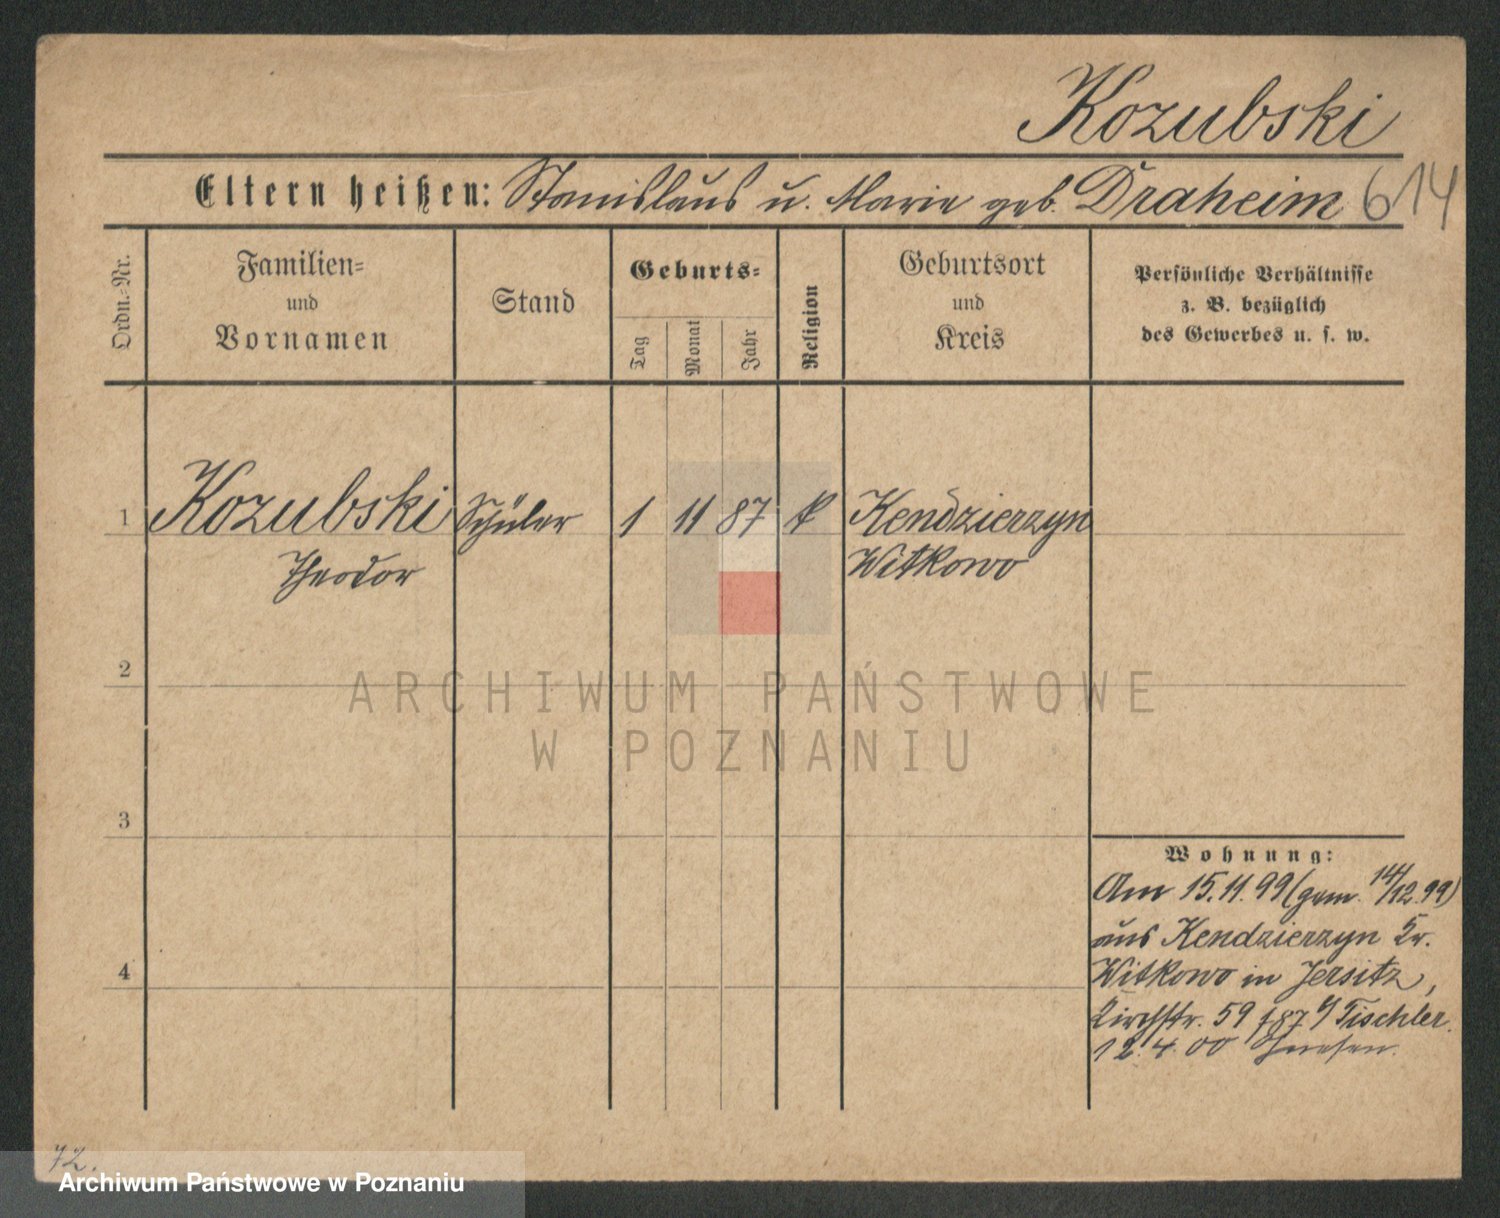 Kozubski
Eltern heißen: Stanislaus u. Marie geb. Draheim 614
Ordn.-Nr.
Familien-
und
Vornamen
Stand
Geburts-
Tag
Monat
Jahr
Religion
Geburtsort
und
Kreis
Persönliche Verhältnisse
z. B. bezüglich
des Gewerbes u. s. w.
1 Kozubski Schüler 1 11 87 k Kendzierzyn
Theodor Witkowo
2
ARCHIWUM PAŃSTWOWE
W POZNANIU
3
4
Wohnung:
Am 15.11.99 (gem. 14/12.99)
aus Kendzierzyn Kr.
Witkowo in Jersitz,
Kirchstr. 59 b/ Tischler.
12.4.00 Gnesen.
72.
Archiwum Państwowe w Poznaniu